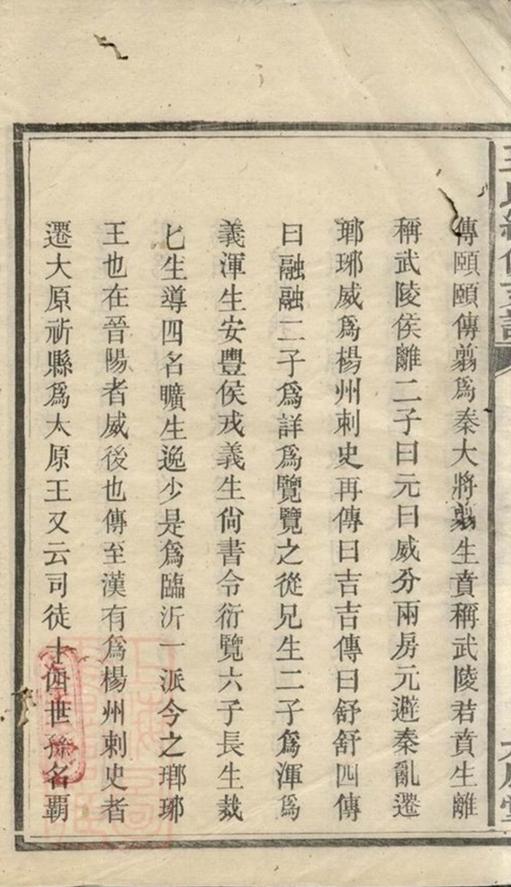 傳頤頤傳翦爲秦大將翦生賁稱武陵君賁生離
稱武陵侯離二子曰元曰威分兩房元避秦亂遷
瑘琊威爲楊州刺史再傳曰吉吉傳曰舒舒四傳
曰融融二子爲詳爲覽覽之從兄生二子爲渾爲
義渾生安豐侯戎義生尙書令衍覽六子長生裁
匕生導四名曠生逸少是爲臨沂一派今之瑘琊
王也在晉陽者威後也傳至漢有爲楊州刺史者
遷大原祈縣爲大原王又云司徒十四世孫名覇